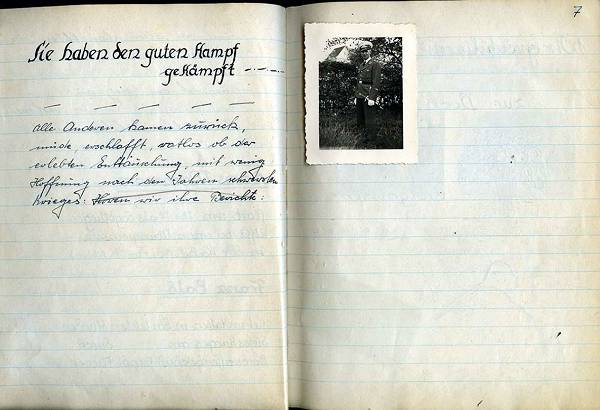 Sie haben den guten Kampf
gekämpft
Alle Anderen kamen zurück,
müde, erschlafft, ratlos ob der
erlebten Enttäuschung, mit wenig
Hoffnung nach den Jahren schwersten
Krieges: Hören wir ihre Berichte:
7